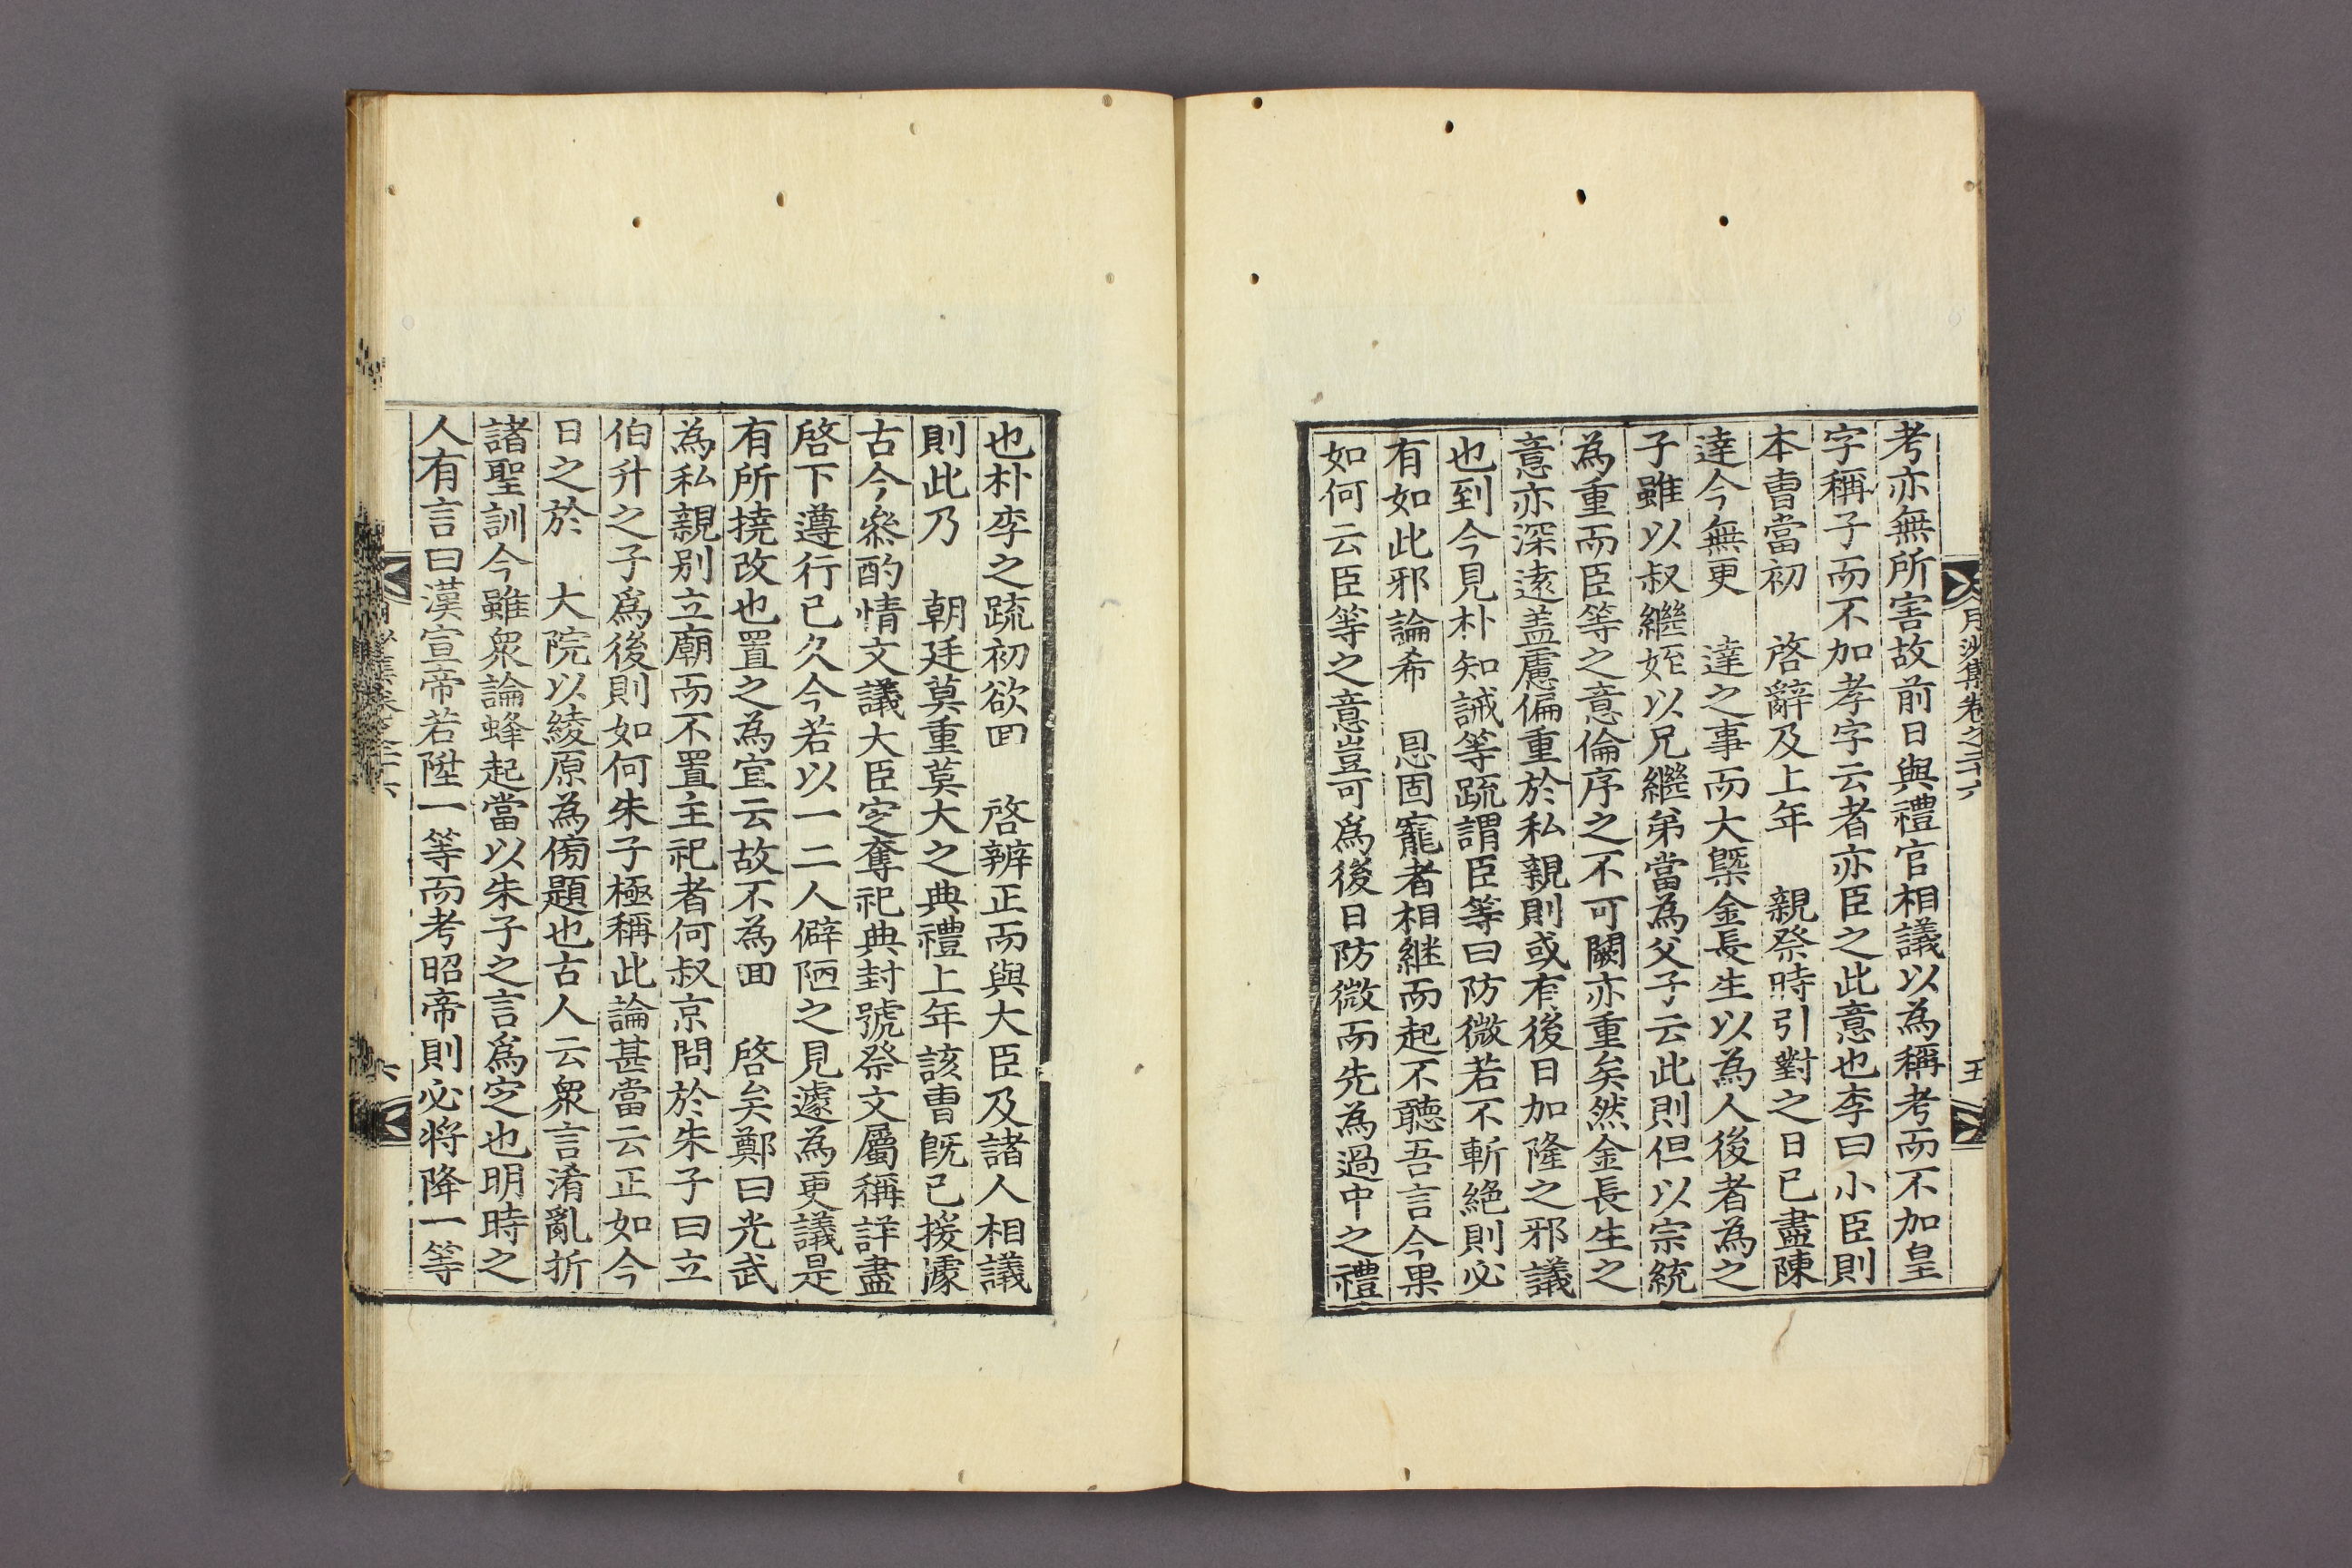 月沙集卷之二十六
五
考亦無所害故前日與禮官相議以為稱考而不加皇
字稱子而不加孝字云者亦臣之此意也李曰小臣則
本曺當初 啓辭及上年 親祭時引對之日已盡陳
達今無更 達之事而大槩金長生以為人後者為之
子雖以叔繼姪以兄繼弟當為父子云此則但以宗統
為重而臣等之意倫序之不可闕亦重矣然金長生之
意亦深遠盖慮偏重於私親則或有後日加隆之邪議
也到今見朴知誡等疏謂臣等曰防微若不斬絶則必
有如此邪論希 恩固寵者相継而起不聽吾言今果
如何云臣等之意豈可爲後日防微而先為過中之禮
也朴李之疏初欲囬 啓辨正而與大臣及諸人相議
則此乃 朝廷莫重莫大之典禮上年該曺旣已援據
古今叅酌情文議大臣定奪祀典封號祭文屬稱詳盡
啓下遵行已久今若以一二人僻陋之見遽為更議是
有所撓改也置之為宜云故不為囬 啓矣鄭曰光武
為私親别立廟而不置主祀者何叔京問於朱子曰立
伯升之子爲後則如何朱子極稱此論甚當云正如今
日之於 大院以綾原為傍題也古人云衆言淆亂折
諸聖訓今雖衆論蜂起當以朱子之言爲定也明時之
人有言曰漢宣帝若陞一等而考昭帝則必将降一等
六